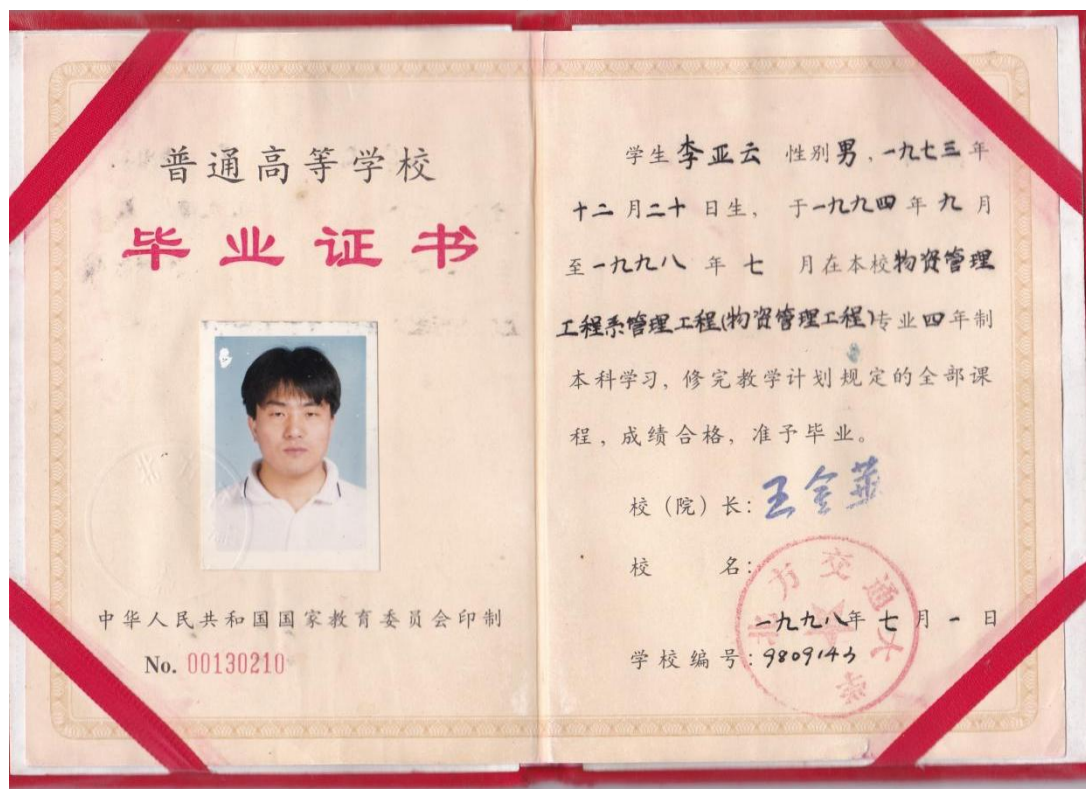 普通高等学校
毕业证书
中华人民共和国国家教育委员会印制
No. 00130210
学生李亚云 性别男，一九七三年
十二月二十日生，于一九九四年九月
至一九九八年七月在本校物资管理
工程系管理工程(物资管理工程)专业四年制
本科学习，修完教学计划规定的全部课
程，成绩合格，准予毕业。
校（院）长：王金华
校 名：
北方交通大学
一九九八年七月一日
学校编号：